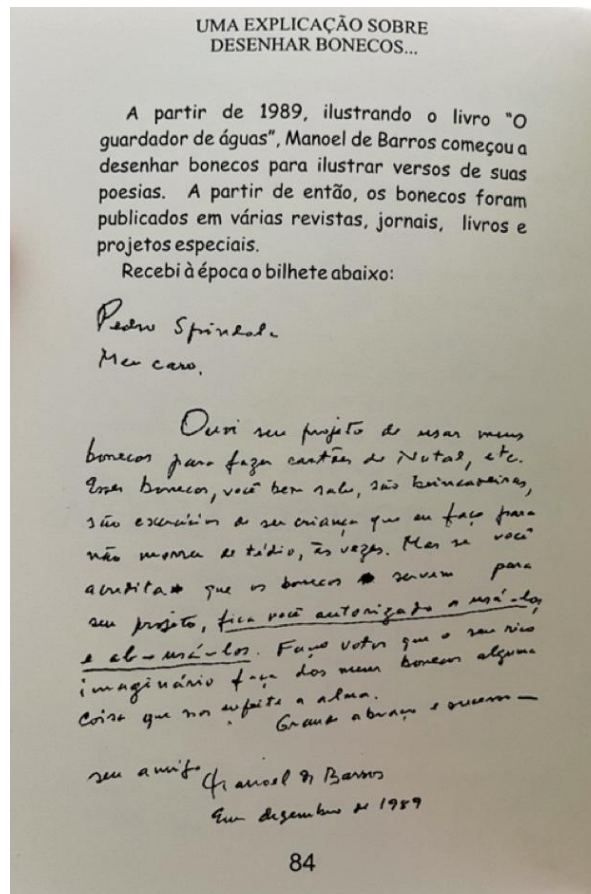 UMA EXPLICAÇÃO SOBRE
DESENHAR BONECOS...
A partir de 1989, ilustrando o livro "O
guardador de águas", Manoel de Barros começou a
desenhar bonecos para ilustrar versos de suas
poesias. A partir de então, os bonecos foram
publicados em várias revistas, jornais, livros e
projetos especiais.
Recebi à época o bilhete abaixo:
Pedro Spindola
Meu caro,
Ouvi seu projeto de usar meus
bonecos para fazer cartões de Natal, etc.
Esses bonecos, você bem sabe, são brincadeiras,
são exercícios de ser criança que eu faço para
não morrer de tédio, às vezes. Mas se você
acredita que os bonecos servem para
seu projeto, fica você autorizado a usá-los,
e ab-usá-los. Faço votos que o seu rico
imaginário faça dos meus bonecos alguma
coisa que nos enfeite a alma.
Grande abraço e sucesso
seu amigo Manoel de Barros
Em dezembro de 1989
84